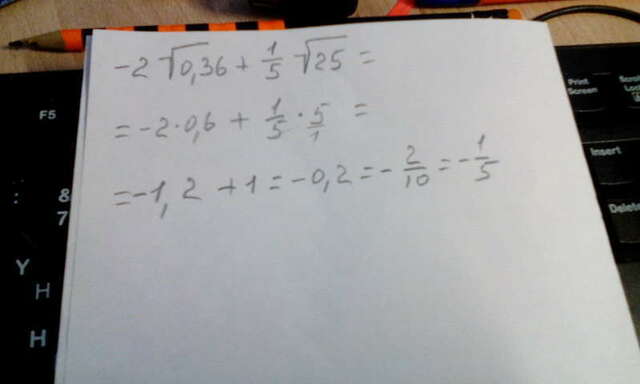 -2 √0,36 + 1/5 √25 =
= -2·0,6 + 1/5 · 5/1 =
= -1,2 + 1 = -0,2 = - 2/10 = - 1/5
F5
Print Screen
Insert
Delete
:
&
7
Y
H
H